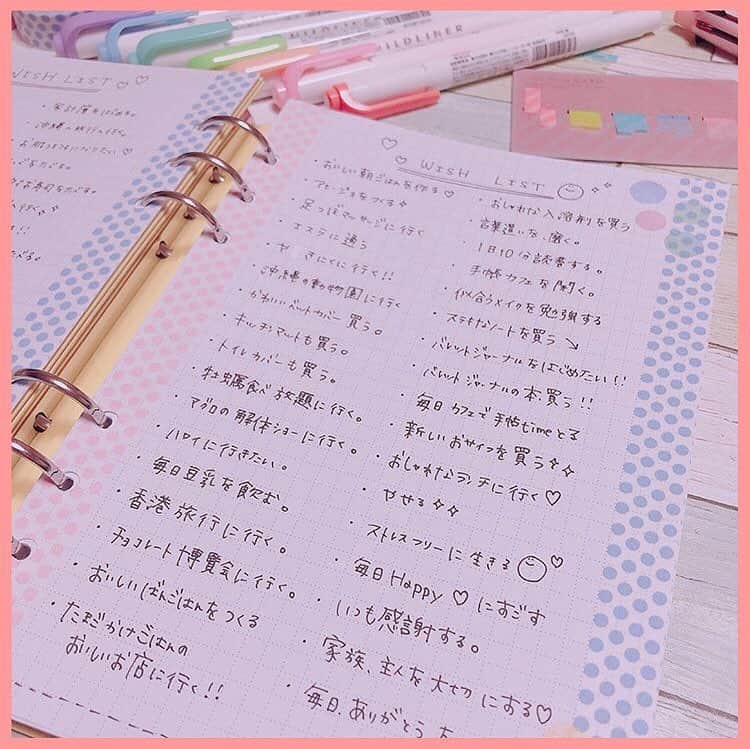 WISH LIST ♡
・家計簿をはじめる。
・沖縄へ旅行へ行く。
MILDLINER
♡ ♡ WISH LIST
・おいしい朝ごはんを作る♡
アヒージョをつくる
・足つぼマッサージに行く
・エステに通う
に行く!!
・沖縄の動物園に行く
・かわいいベットカバー買う。
・キッチンマットも買う。
・トイレカバーも買う。
・牡蠣食べ放題に行く。
・マグロの解体ショーに行く。
・ハワイに行きたい。
・毎日豆乳を飲む。
・香港旅行に行く。
・チョコレート博覧会に行く。
・おいしいばんごはんをつくる
・たまごかけごはんの
おいしいお店に行く!!
・おしゃれな入浴剤を買う
・言葉遣いを、磨く。
・1日10分読書する。
・手帳カフェを開く。
・似合うメイクを勉強する
・ステキなノートを買う ↘
・バレットジャーナルをはじめたい!!
・バレットジャーナルの本、買う!!
・毎日カフェで手帖timeとる
・新しいおサイフを買う
・おしゃれなランチに行く♡
・やせる
・ストレスフリーに生きる ♡
・毎日Happy♡にすごす
・いつも感謝する。
・家族、主人を大切にする♡
・毎日、ありがとう